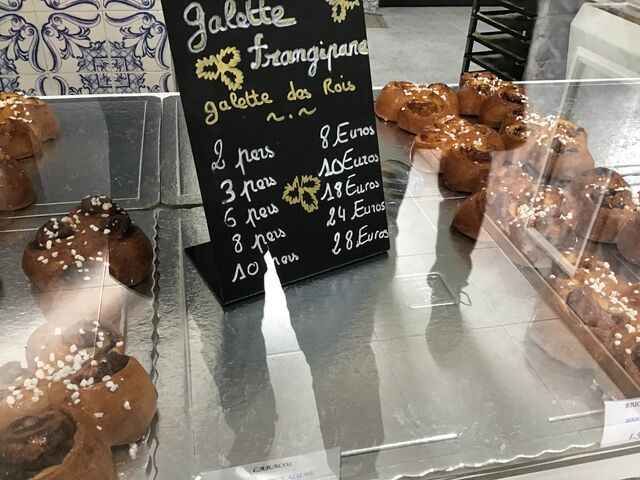 Galette
frangipane
galette des Rois
2 pers 8 Euros
3 pers 10 Euros
6 pers 18 Euros
8 pers 24 Euros
10 pers 28 Euros